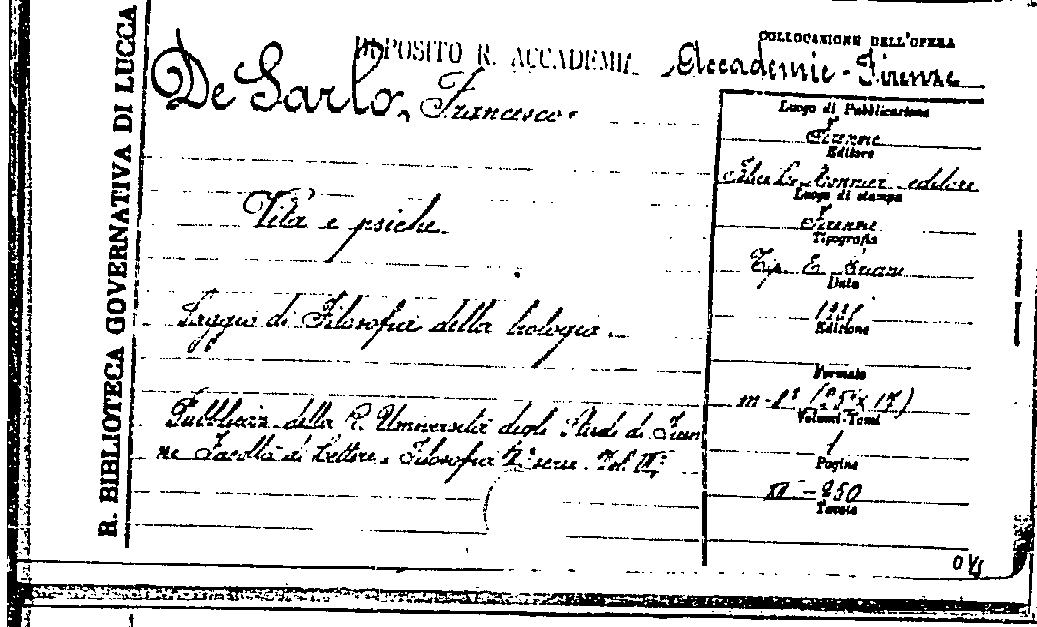 R. BIBLIOTECA GOVERNATIVA DI LUCCA
DEPOSITO R. ACCADEMIE
De Sarlo, Francesco.
Vita e psiche.
Saggio di Filosofia della biologia.
Pubblicaz. della R. Università degli Studi di Firen
ze Facoltà di Lettere e Filosofia serie Vol.
COLLOCAZIONE DELL'OPERA
Accademie - Firenze
Luogo di Pubblicazione
Firenze
Editore
Felice Le Monnier editore
Luogo di stampa
Firenze
Tipografia
Tip. E.
Data
Edizione
Formato
m-8°
Volumi-Tomi
1
Pagine
250
Tavole